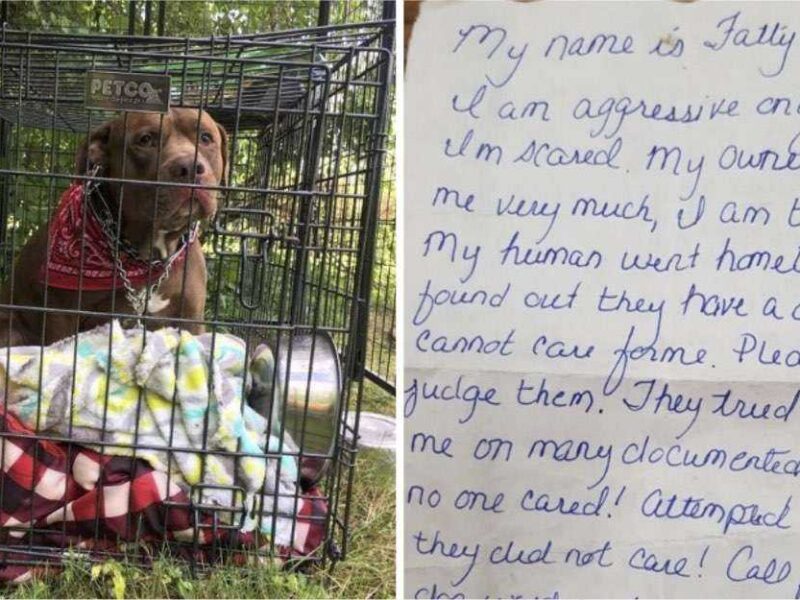 PETCO
My name is Fatty
I am aggressive
I'm scared. My
me very much, I am
My human went
found out they have a
cannot care for me.
judge them. They tried
me on many documented
no one cared! Attempted
they did not care! Call